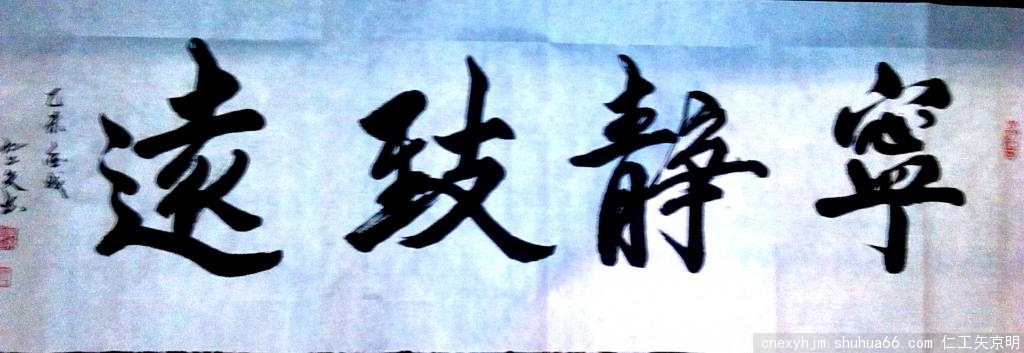 寧靜致遠
cnexyhjm.shuhua66.com 仁工矢京明